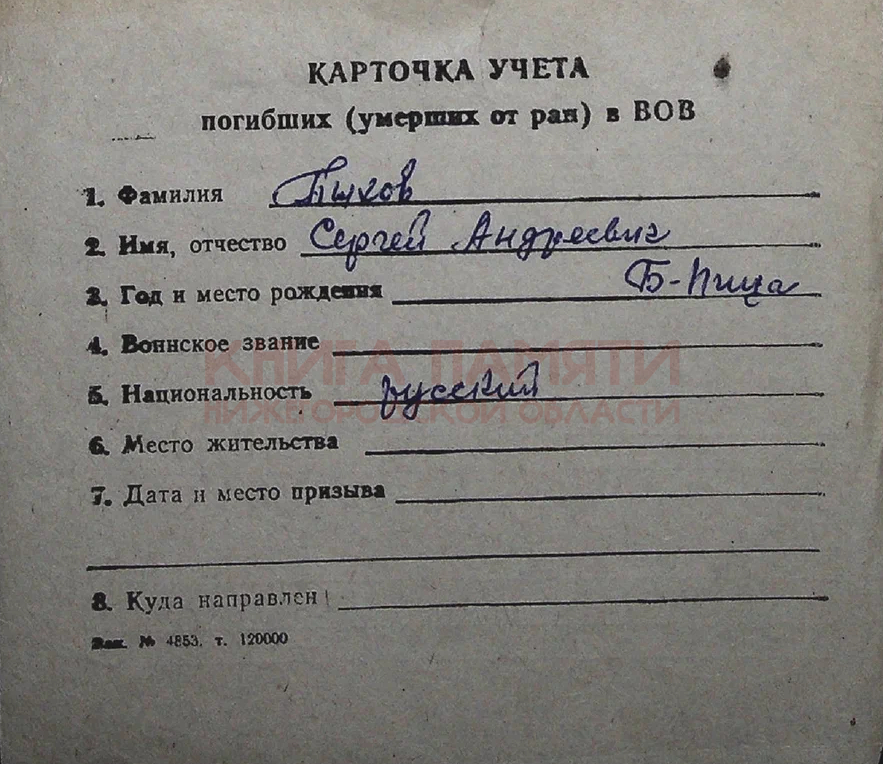 КАРТОЧКА УЧЕТА
погибших (умерших от ран) в ВОВ
1. Фамилия Пыхов
2. Имя, отчество Сергей Андреевич
3. Год и место рождения Б-Пица
4. Воинское звание
КНИГА ПАМЯТИ
5. Национальность русский
НИЖЕГОРОДСКОЙ ОБЛАСТИ
6. Место жительства
7. Дата и место призыва
8. Куда направлен
Зак. № 4853. т. 120000